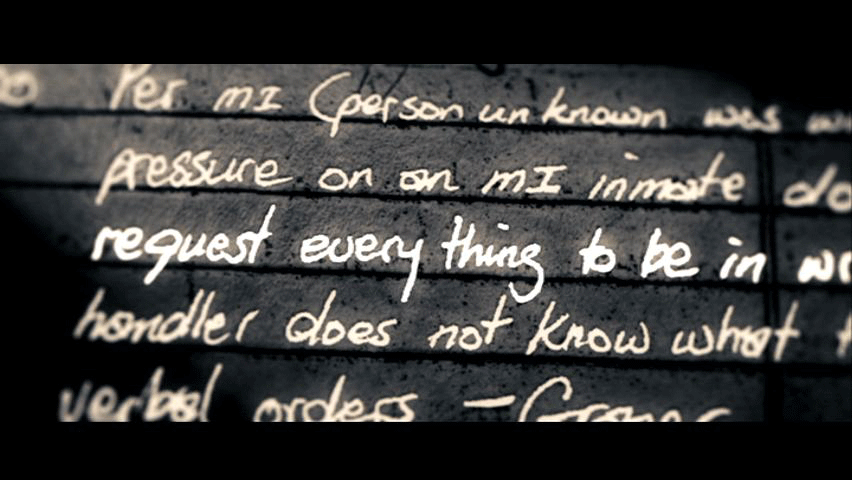 Per MI (person unknown was
pressure on an MI inmate
request everything to be in
handler does not know what
verbal orders – Graner